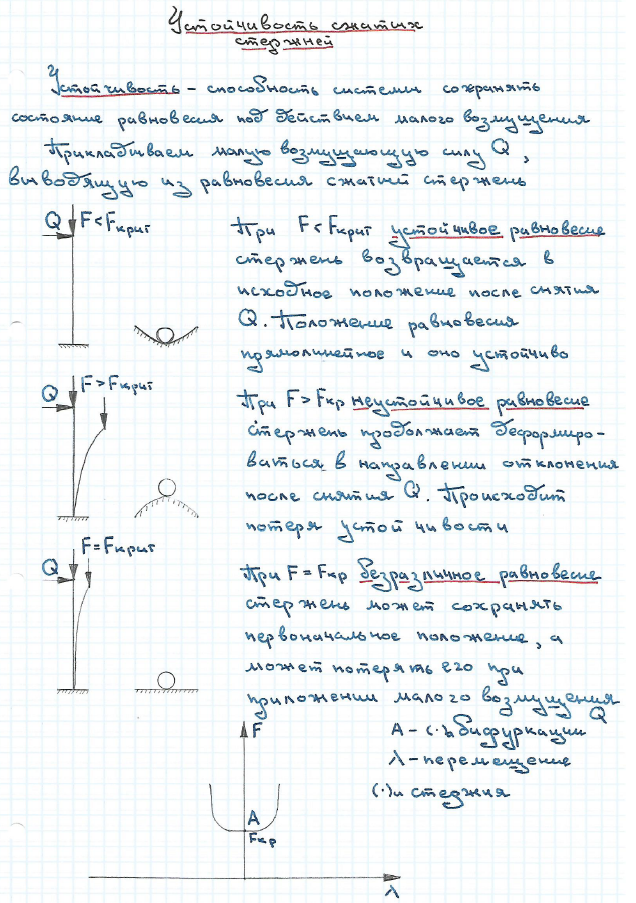 Устойчивость сжатых
стержней
Устойчивость – способность системы сохранять
состояние равновесия под действием малого возмущения
Прикладываем малую возмущающую силу Q,
выводящую из равновесия сжатый стержень
Q F < Fкрит
При F < Fкрит устойчивое равновесие
стержень возвращается в
исходное положение после снятия
Q. Положение равновесия
прямолинейное и оно устойчиво
Q F > Fкрит
При F > Fкр неустойчивое равновесие
стержень продолжает деформиро-
ваться в направлении отклонения
после снятия Q. Происходит
потеря устойчивости
Q F = Fкрит
При F = Fкр безразличное равновесие
стержень может сохранять
первоначальное положение, а
может потерять его при
приложении малого возмущения
Q
A – (·) бифуркации
λ – перемещение
(·) и стеджия
F
A
Fкр
λ